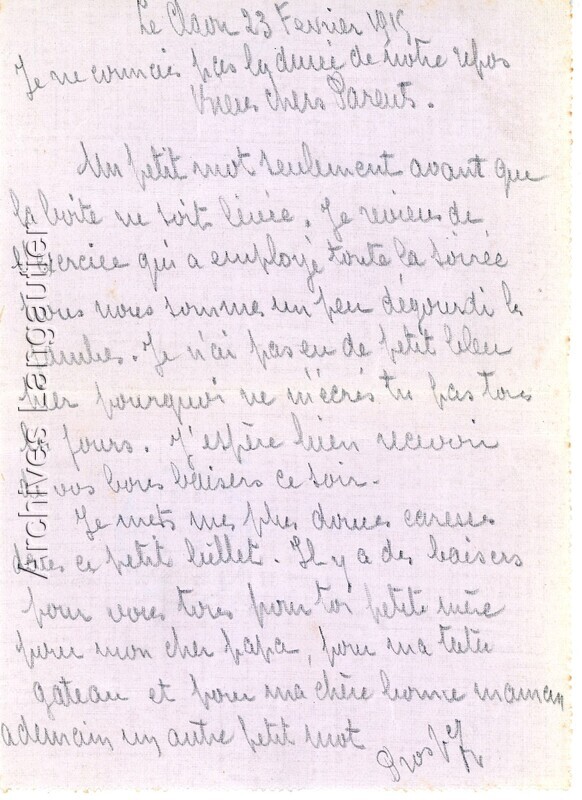 Le Claon 23 Fevrier 1915
Je ne connais pas la durée de notre repos
chers Parents.
Un petit mot seulement avant que
la boite ne soit levée. Je reviens de
l'exercice qui a employé toute la soirée
nous nous sommes un peu dégourdi les
jambes. Je n'ai pas eu de petit bleu
hier pourquoi ne m'écris tu pas tous
les jours. J'espère bien recevoir
vos bons baisers ce soir.
Je mets mes plus douces caresses
dans ce petit billet. Il y a des baisers
pour vous tous pour toi petite mère
pour mon cher papa, pour ma tata
gateau et pour ma chère bonne maman
a demain un autre petit mot
Archives Langautier